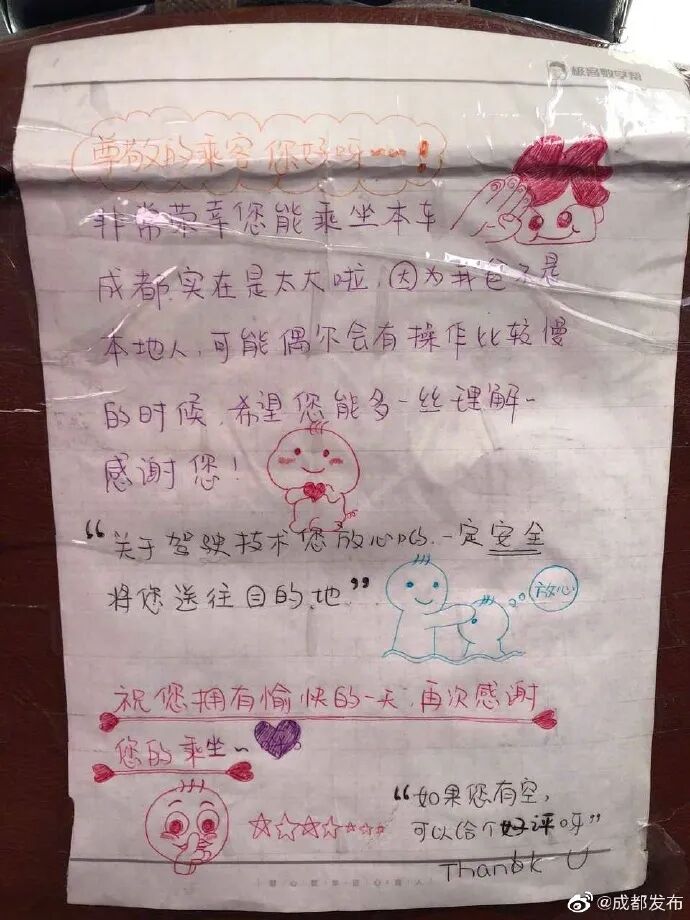 极客数学帮
尊敬的乘客 您好呀……!
非常荣幸您能乘坐本车
成都实在是太大啦,因为我爸不是
本地人,可能偶尔会有操作比较慢
的时候,希望您能多一丝理解~
感谢您!
“关于驾驶技术您放心哟,一定安全
将您送往目的地”
放心
祝您拥有愉快的一天,再次感谢
您的乘坐~
“如果您有空,
可以给个好评呀”
Thank U
@成都发布